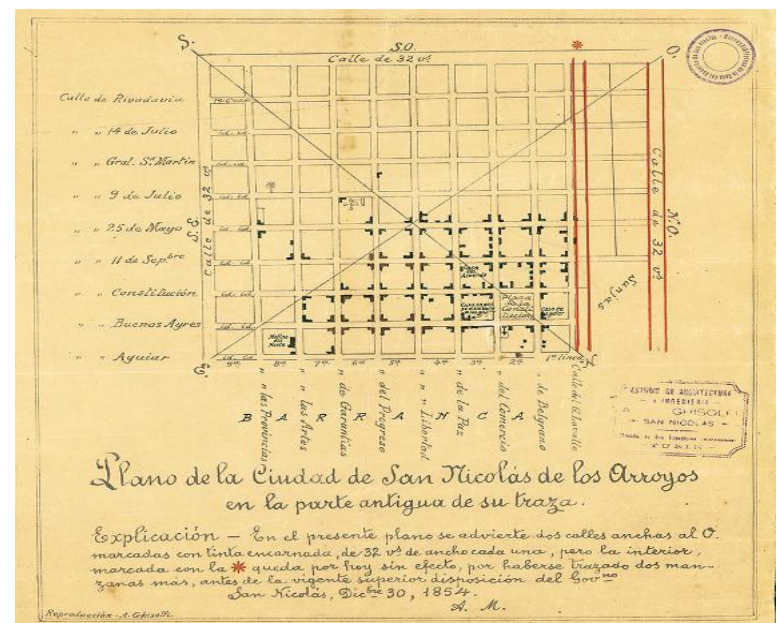 S.
S.O.
O.
Calle de 32 vs
Calle de Rivadavia
" " 14 de Julio
" " Gral. Sn Martin
" " 9 de Julio
" " 25 de Mayo
" " 11 de Sepbre
" " Constitución
" " Buenos Ayres
" " Aguiar
S.E.
Calle de 32 vs
Calle de 32 vs
N.O.
Sanjas
Plaza
Consti
tución
Molino
E.
N.
9ª 8ª 7ª 6ª 5ª 4ª 3ª 2ª 1ª linea
" " las Provincias
" " las Artes
" " de Garantias
" " del Progreso
" " " Libertad
" " de la Paz
" " del Comercio
" " de Belgrano
BARRANCA
ESTUDIO DE ARQUITECTURA
E INGENIERIA
GHISOLFI
SAN NICOLAS
TURIN
Plano de la Ciudad de San Nicolás de los Arroyos
en la parte antigua de su traza.
Explicación — En el presente plano se advierte dos calles anchas al O.
marcadas con tinta encarnada, de 32 vs de ancho cada una, pero la interior,
marcada con la * queda por hoy sin efecto, por haberse trazado dos man-
zanas más, antes de la vigente superior disposición del Govno
San Nicolás, Dicbre 30, 1854.
A. M.
Reproducción - A. Ghisolfi.